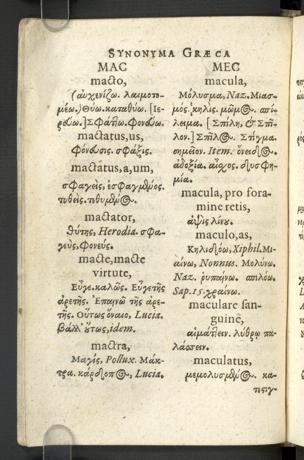 SYNONYMA GRÆCA
MAC
macto,
(αὐχενίζω. λαιμοτο-
μέω.) Θύω. καταθύω. [Ιε-
ρεύω.] Σφάττω. Φονεύω.
mactatus, us,
Φόνευσις. σφάξις.
mactatus, a, um,
σφαγείς. ἐσφαγμένος.
τυθείς. τεθυμένος.
mactator,
θύτης, Herodia. σφα-
γεύς. Φονεύς.
macte, macte
virtute,
Εὖγε. καλῶς. Εὖγε τῆς
ἀρετῆς. Ἐπαινῶ τῆς ἀρε-
τῆς. Οὕτως ὄναιο, Lucia.
βάλλ' οὕτως, idem.
mactra,
Μαγίς, Pollux. Μάκ-
τρα. κάρδοπος, Lucia.
MEC
macula,
Μόλυσμα, Naz. Μιασ-
μός. κηλίς. μῶμος. σπί-
λωμα. [Σπίλη, & Σπῖ-
λον.] Σπίλος. Στίγμα.
σημεῖον. Item. ὄνειδος.
ἀδοξία. αἶσχος. δυσφη-
μία.
macula, pro fora-
mine retis,
ἁψὶς λίνου.
maculo, as,
Κηλιδόω, Xiphil. Μι-
αίνω, Nonnus. Μολύνω.
Naz. ῥυπαίνω. σπιλόω.
Sap. 15. χραίνω.
maculare san-
guine,
αἱμάττειν. λύθρῳ πα-
λάσσειν.
maculatus,
μεμολυσμένος. κα-